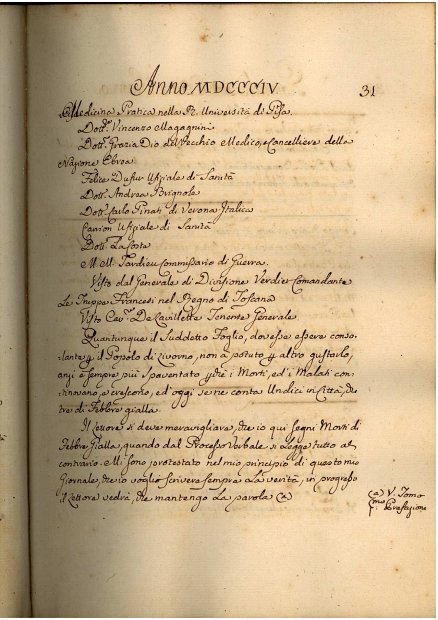 Anno MDCCCIV 31
Medicina Pratica nella R. Università di Pisa.
Dott.r Vincenzo Magagnini
Dott.r Grazia Dio del Vecchio Medico, e Cancelliere della
Nazione Ebrea
Felice Dufur Ufiziale di Sanità
Dott.r Andrea Brignole
Dott.r Carlo Pinali di Verona Italica
Carrion Ufiziale di Sanità
Dott.r La Coste
M. M. Tardieu Commissario di Guerra.
Visto dal Generale di Divisione Verdier Comandante
Le Truppe Francesi nel Regno di Toscana
Visto Cav.r De Lavillette Tenente Generale
Quantunque il Suddetto Foglio, dovesse essere conso-
lante p il Popolo di Livorno, non à potuto p altro gustarlo,
anzi è sempre più spaventato chè i Morti, ed i Malati con-
tinovano, e crescono, ed oggi se ne conta Undici in Città, che
tre di Febbre gialla.
Il Lettore si deve meravigliare, che io qui segni Morti di
Febbre Gialla, quando dal Processo Verbale si legge tutto al
contrario. Mi sono protestato nel mio principio di questo mio
Giornale, che io voglio scrivere sempre La verità, in progresso
il Lettore vedrà, che mantengo La parola (a)
(a) V. Tomo
Prefazione